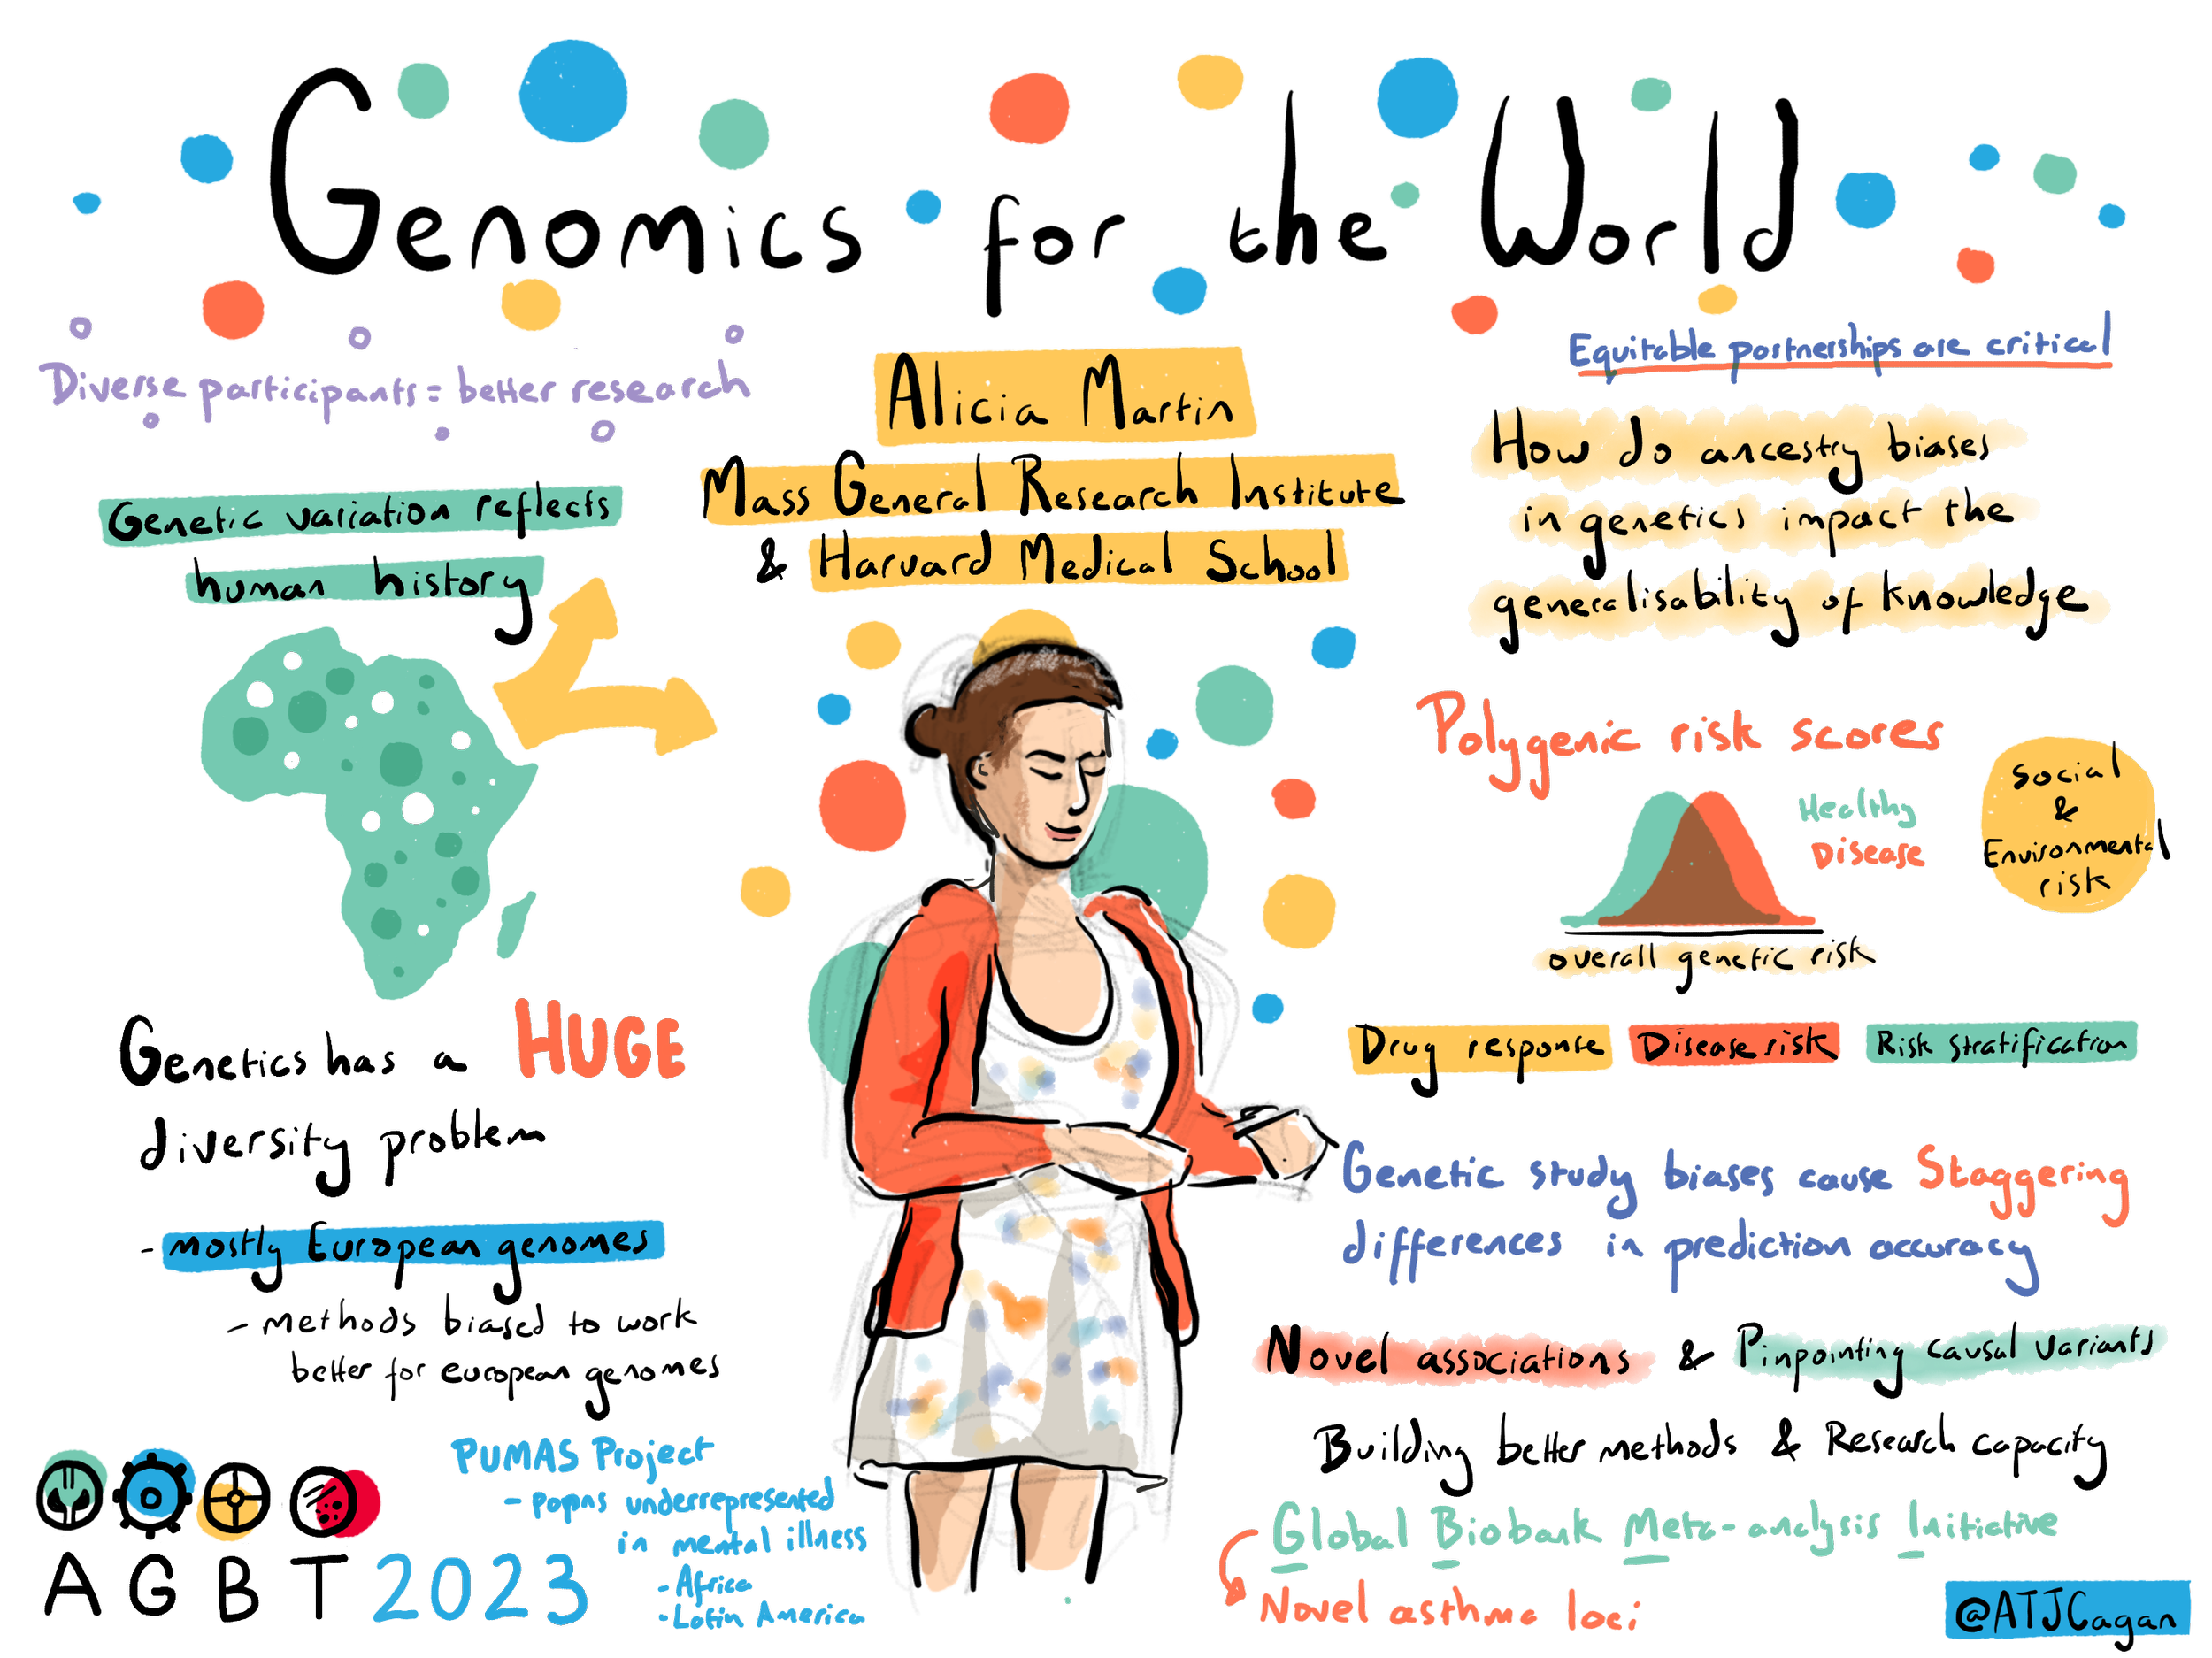 Genomics for the World
Diverse participants = better research
Genetic variation reflects
human history
Genetics has a HUGE
diversity problem
- mostly European genomes
- methods biased to work
better for european genomes
PUMAS Project
- popns underrepresented
in mental illness
- Africa
- Latin America
AGBT 2023
Alicia Martin
Mass General Research Institute
& Harvard Medical School
Equitable partnerships are critical
How do ancestry biases
in genetics impact the
generalisability of knowledge
Polygenic risk scores
Healthy
Disease
overall genetic risk
Social
&
Environmental
risk
Drug response
Disease risk
Risk stratification
Genetic study biases cause Staggering
differences in prediction accuracy
Novel associations & Pinpointing causal variants
Building better methods & Research capacity
Global Biobank Meta-analysis Initiative
Novel asthma loci
@ATJCagan